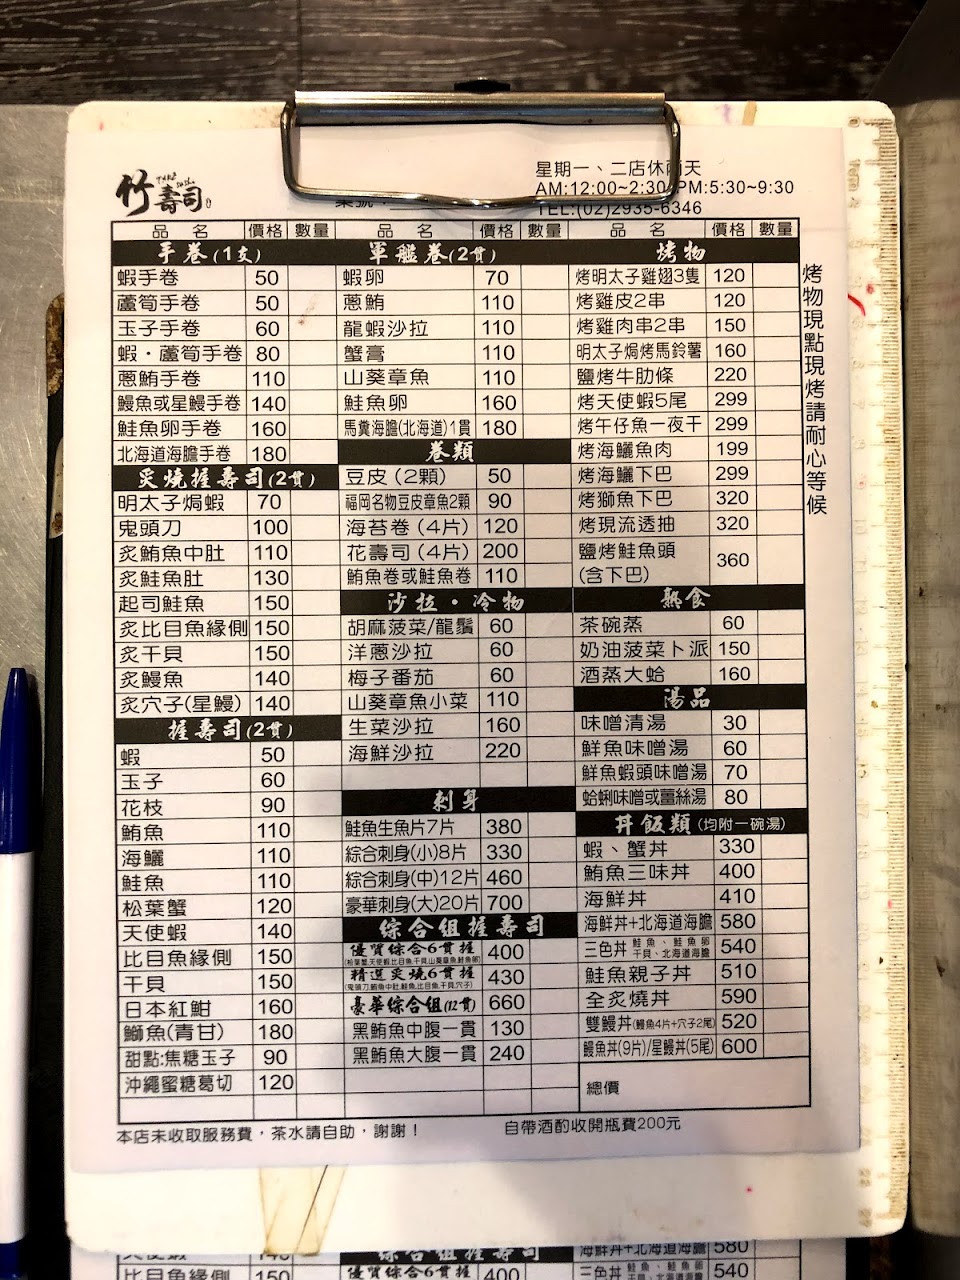 竹壽司
星期一、二店休兩天
AM:12:00~2:30 PM:5:30~9:30
TEL:(02)2935-6346
品 名 價格 數量 品 名 價格 數量 品 名 價格 數量
手卷(1支)
蝦手卷 50
蘆筍手卷 50
玉子手卷 60
蝦・蘆筍手卷 80
蔥鮪手卷 110
鰻魚或星鰻手卷 140
鮭魚卵手卷 160
北海道海膽手卷 180
炙燒握壽司(2貫)
明太子焗蝦 70
鬼頭刀 100
炙鮪魚中肚 110
炙鮭魚肚 130
起司鮭魚 150
炙比目魚緣側 150
炙干貝 150
炙鰻魚 140
炙穴子(星鰻) 140
握壽司(2貫)
蝦 50
玉子 60
花枝 90
鮪魚 110
海鱺 110
鮭魚 110
松葉蟹 120
天使蝦 140
比目魚緣側 150
干貝 150
日本紅魽 160
鰤魚(青甘) 180
甜點:焦糖玉子 90
沖繩蜜糖葛切 120
軍艦卷(2貫)
蝦卵 70
蔥鮪 110
龍蝦沙拉 110
蟹膏 110
山葵章魚 110
鮭魚卵 160
馬糞海膽(北海道)1貫 180
卷類
豆皮(2顆) 50
福岡名物豆皮章魚2顆 90
海苔卷(4片) 120
花壽司(4片) 200
鮪魚卷或鮭魚卷 110
沙拉・冷物
胡麻菠菜/龍鬚 60
洋蔥沙拉 60
梅子番茄 60
山葵章魚小菜 110
生菜沙拉 160
海鮮沙拉 220
刺身
鮭魚生魚片7片 380
綜合刺身(小)8片 330
綜合刺身(中)12片 460
豪華刺身(大)20片 700
綜合組握壽司
優質綜合6貫握 400
(松葉蟹,天使蝦,比目魚,干貝,山葵章魚,鮭魚卵)
精選炙燒6貫握 430
(鬼頭刀,鮪魚中肚,鮭魚,比目魚,干貝,穴子)
豪華綜合組(12貫) 660
黑鮪魚中腹一貫 130
黑鮪魚大腹一貫 240
烤物
烤明太子雞翅3隻 120
烤雞皮2串 120
烤雞肉串2串 150
明太子焗烤馬鈴薯 160
鹽烤牛肋條 220
烤天使蝦5尾 299
烤午仔魚一夜干 299
烤海鱺魚肉 199
烤海鱺下巴 299
烤獅魚下巴 320
烤現流透抽 320
鹽烤鮭魚頭
(含下巴) 360
熟食
茶碗蒸 60
奶油菠菜卜派 150
酒蒸大蛤 160
湯品
味噌清湯 30
鮮魚味噌湯 60
鮮魚蝦頭味噌湯 70
蛤蜊味噌或薑絲湯 80
丼飯類(均附一碗湯)
蝦、蟹丼 330
鮪魚三味丼 400
海鮮丼 410
海鮮丼+北海道海膽 580
三色丼 鮭魚、鮭魚卵 干貝、北海道海膽 540
鮭魚親子丼 510
全炙燒丼 590
雙鰻丼(鰻魚4片+穴子2尾) 520
鰻魚丼(9片)/星鰻丼(5尾) 600
總價
烤物現點現烤請耐心等候
本店未收取服務費，茶水請自助，謝謝！
自帶酒酌收開瓶費200元
綜合組握壽司
海鮮丼+北海道海膽 580
比目魚緣側 150
優質綜合6貫握 400
三色丼 540